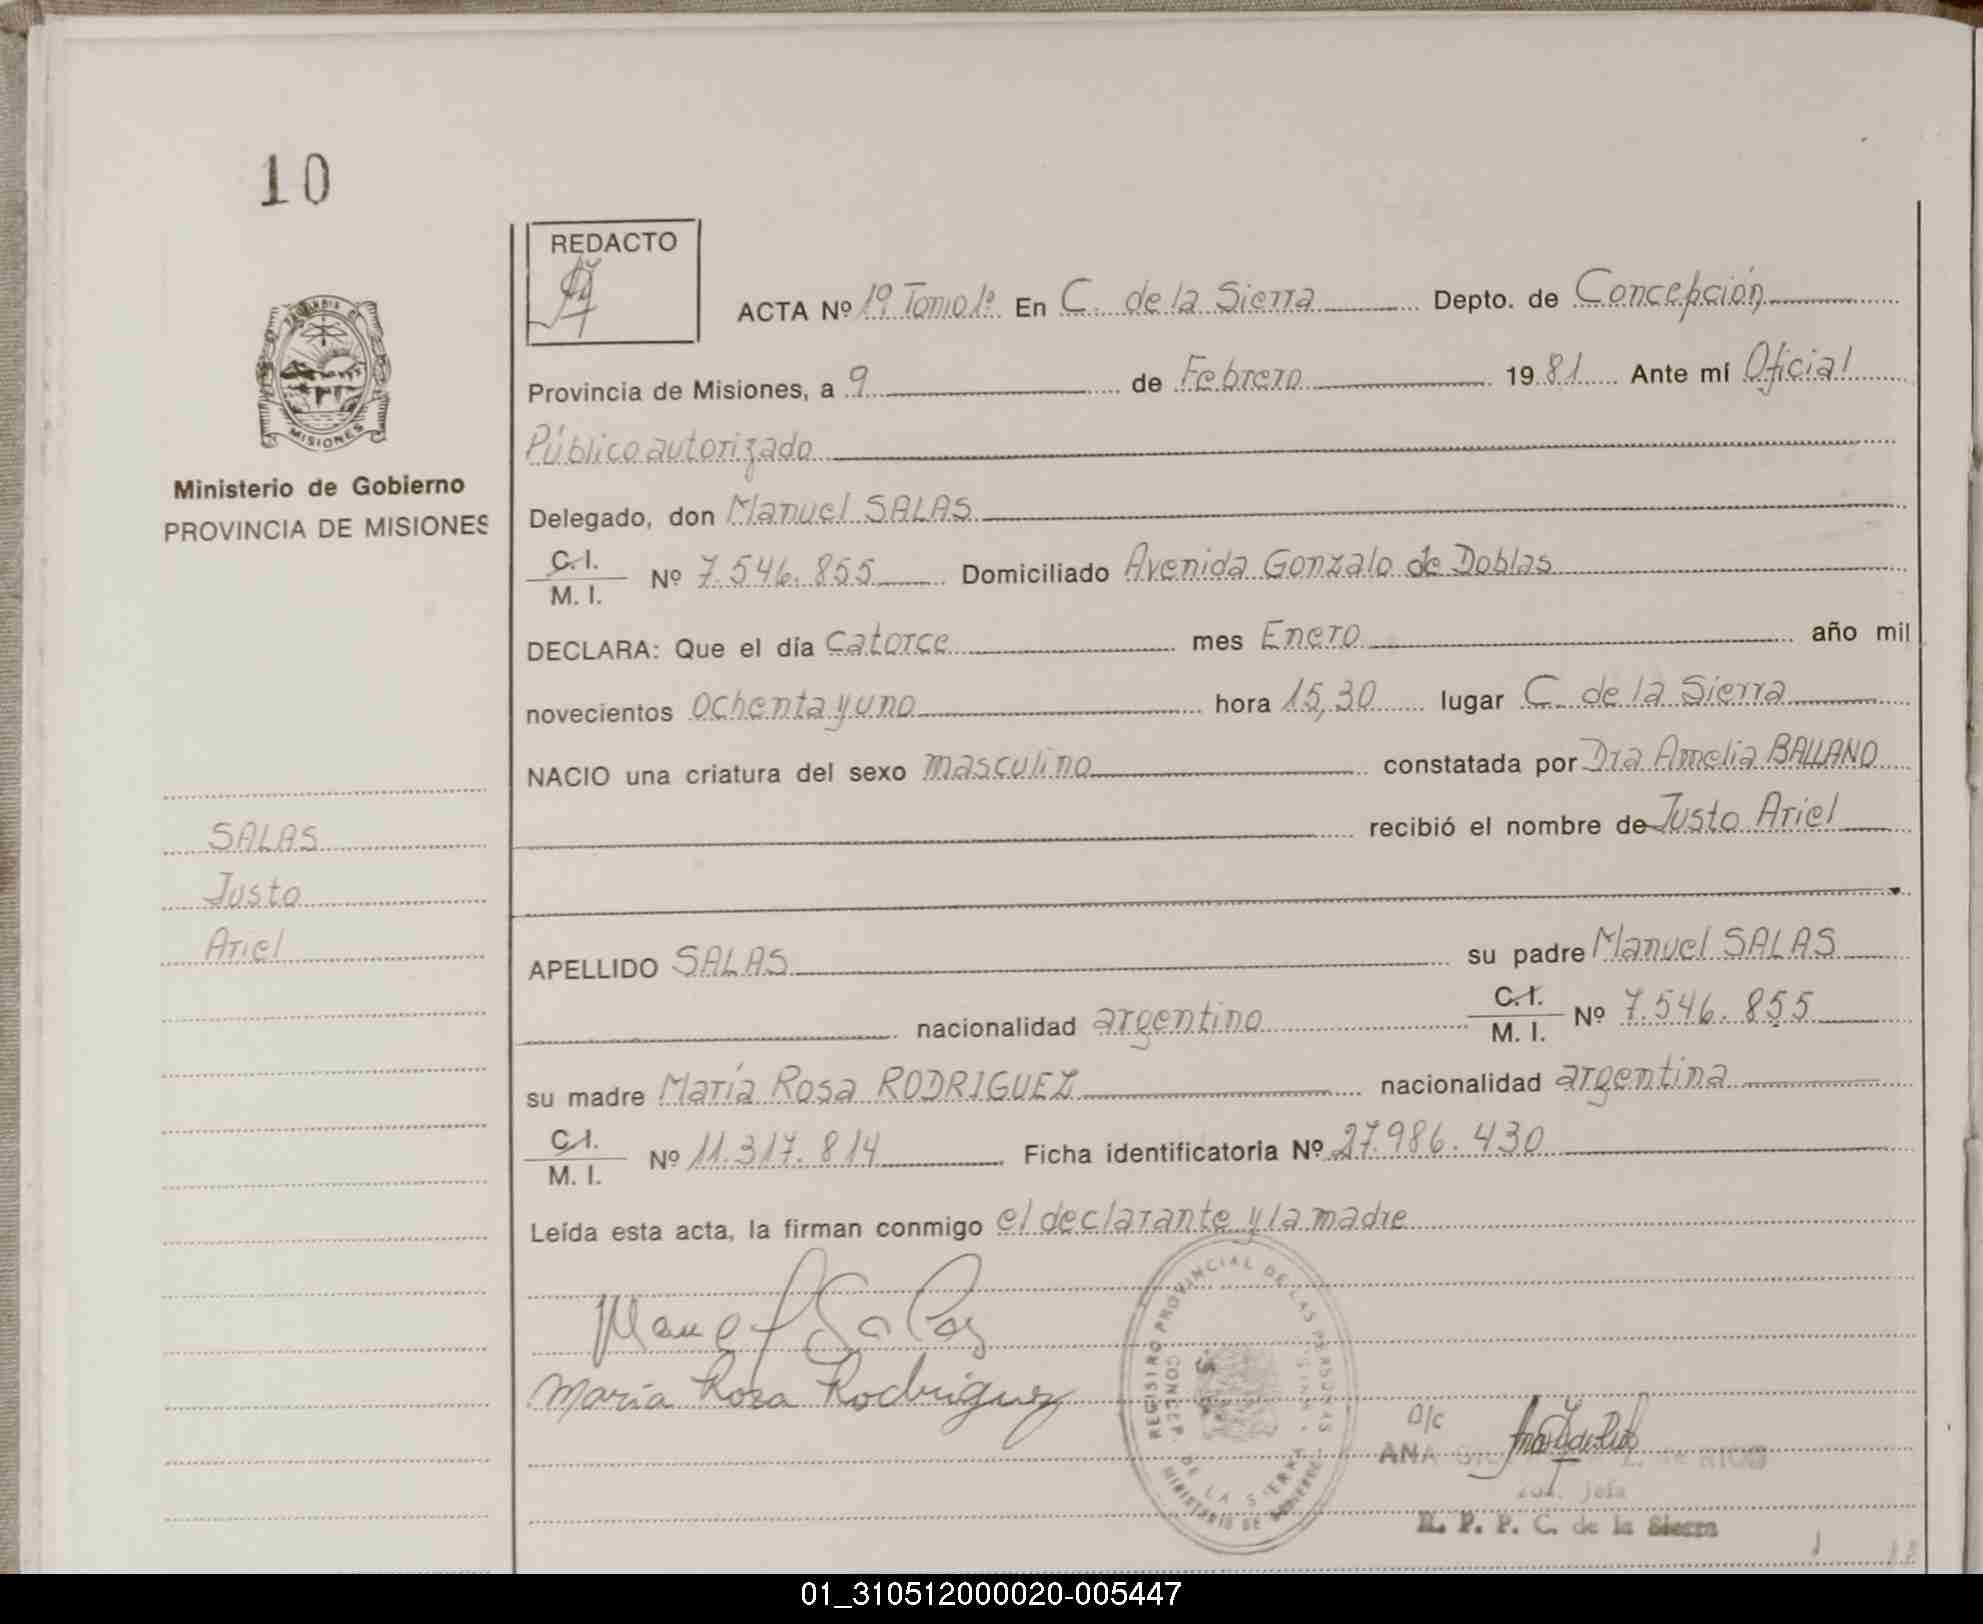 10
REDACTO
ACTA Nº 19 Tomo 1º En C. de la Sierra Depto. de Concepción
Provincia de Misiones, a 9 de Febrero 1981 Ante mí Oficial
Público autorizado
MISIONES
Ministerio de Gobierno
PROVINCIA DE MISIONES
Delegado, don Manuel SALAS
C.I.
M. I. Nº 7.546.855 Domiciliado Avenida Gonzalo de Doblas
DECLARA: Que el día catorce mes Enero año mil
novecientos ochenta y uno hora 15,30 lugar C. de la Sierra
NACIO una criatura del sexo masculino constatada por Dra Amelia BALLANO
recibió el nombre de Justo Ariel
SALAS
Justo
Ariel
APELLIDO SALAS su padre Manuel SALAS
nacionalidad argentino C.I.
M. I. Nº 7.546.855
su madre María Rosa RODRIGUEZ nacionalidad argentina
C.I.
M. I. Nº 11.317.814 Ficha identificatoria Nº 27.986.430
Leída esta acta, la firman conmigo el declarante y la madre
Manuel Salas
María Rosa Rodriguez
REGISTRO PROVINCIAL DE LAS PERSONAS
CONCEP. DE LA SIERRA
MINISTERIO DE GOBIERNO
a/c
ANA RIOS
Jefa
R. P. P. C. de la Sierra
01_310512000020-005447